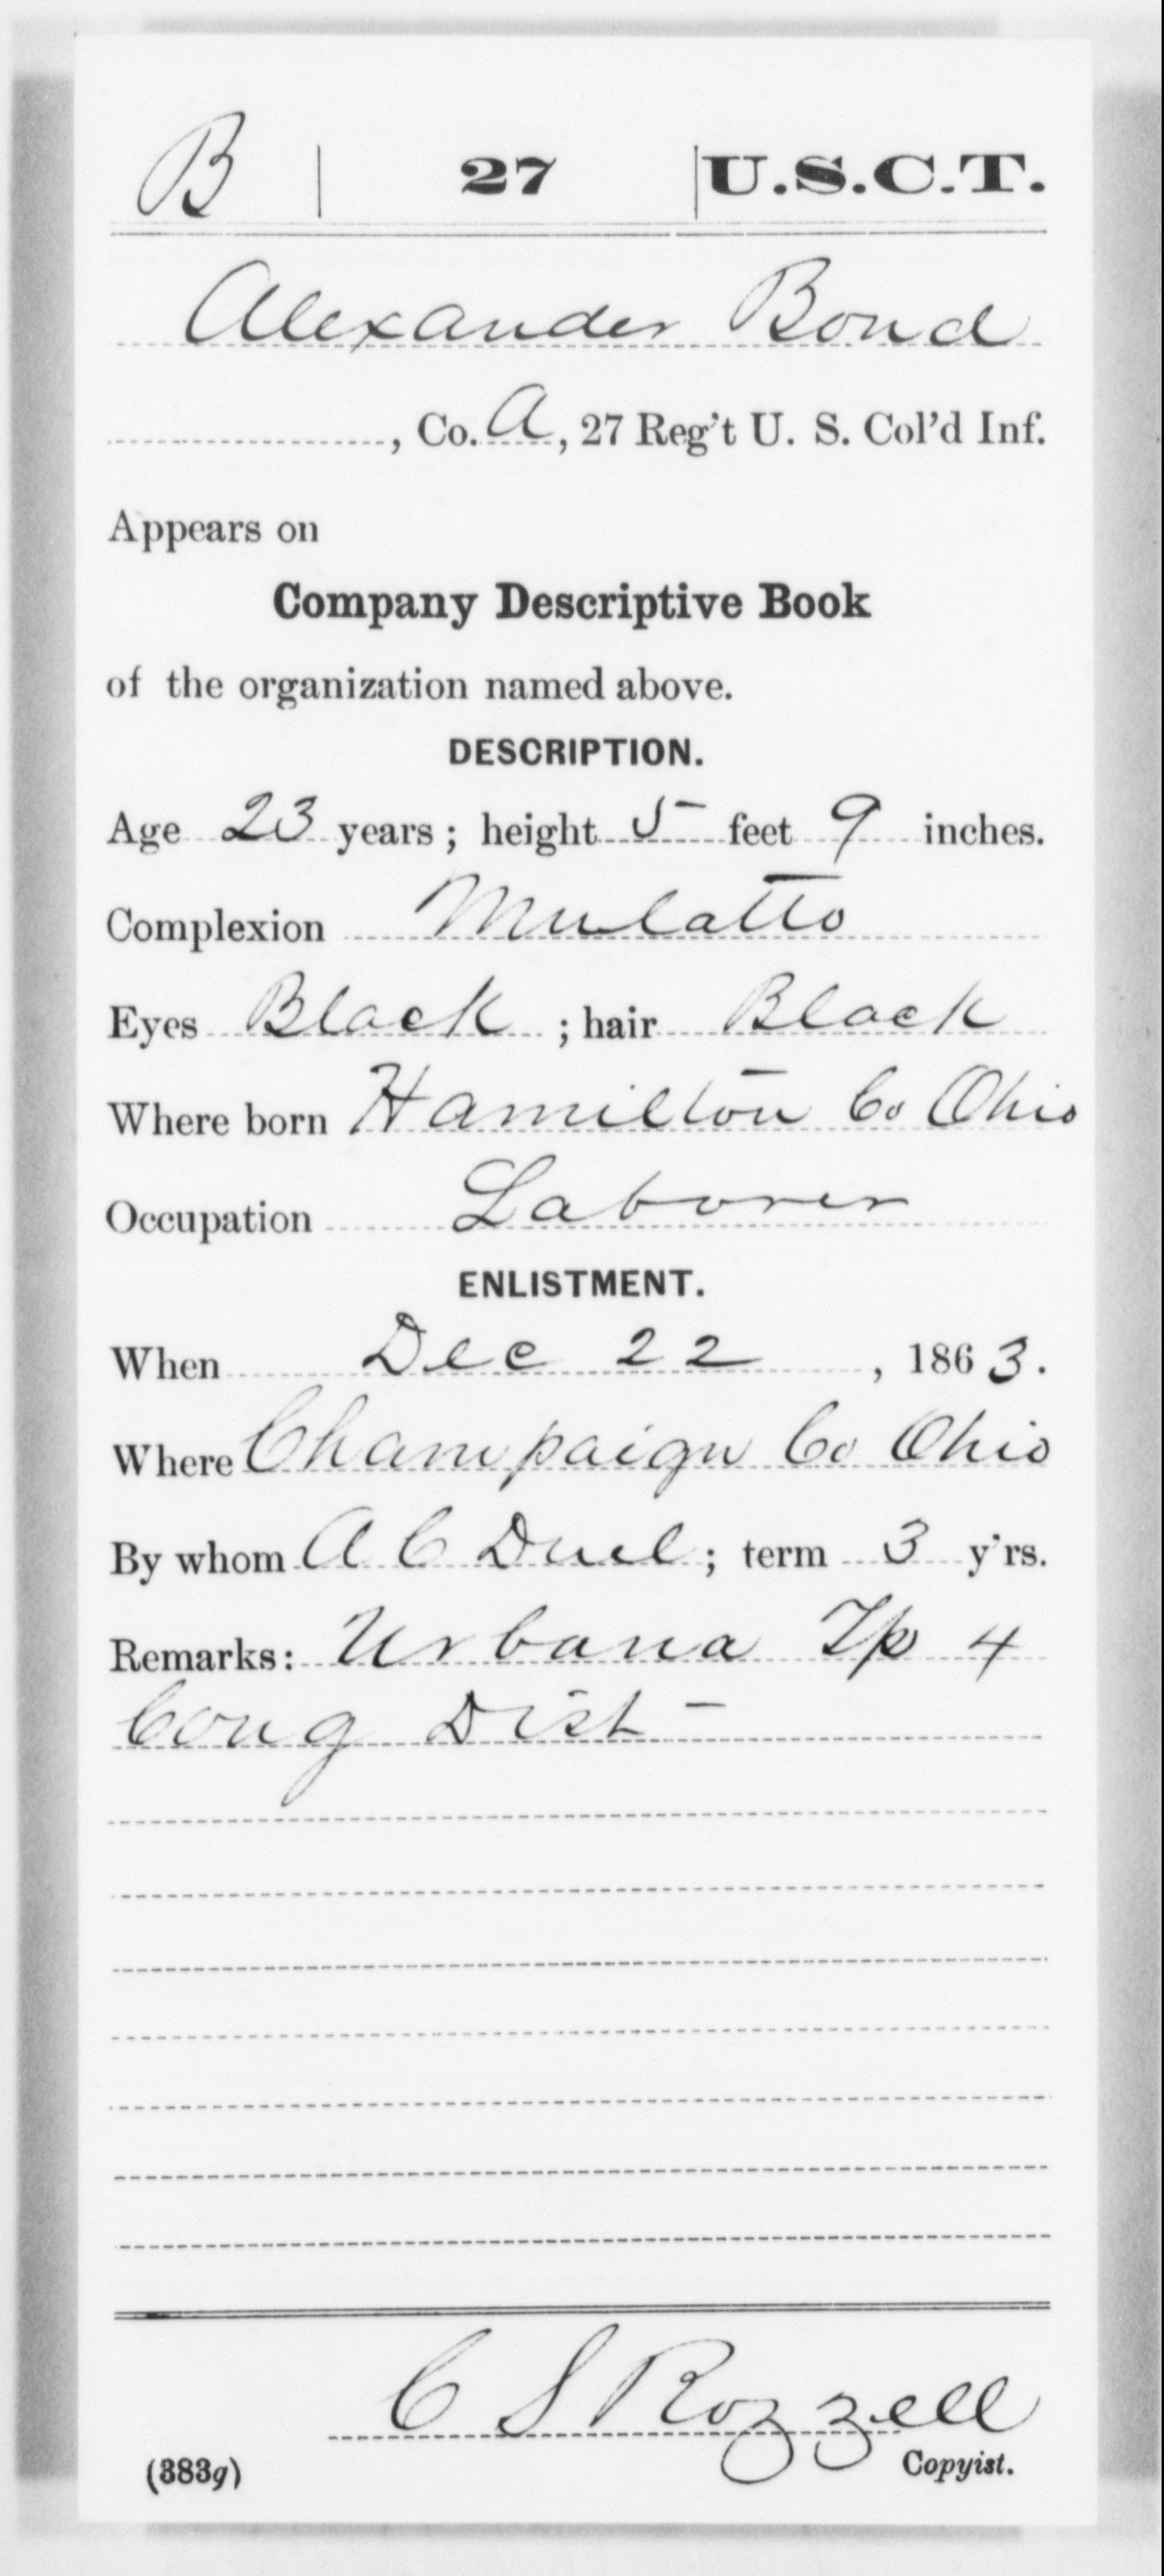 B | 27 | U.S.C.T.
Alexander Bond
, Co. A, 27 Reg't U. S. Col'd Inf.
Appears on
Company Descriptive Book
of the organization named above.
DESCRIPTION.
Age 23 years; height 5 feet 9 inches.
Complexion Mulatto
Eyes Black; hair Black
Where born Hamilton Co Ohio
Occupation Laborer
ENLISTMENT.
When Dec 22, 1863.
Where Champaign Co Ohio
By whom A C Duel; term 3 y'rs.
Remarks: Urbana Tp 4
Cong Dist -
C S Rozzell
(383g) Copyist.